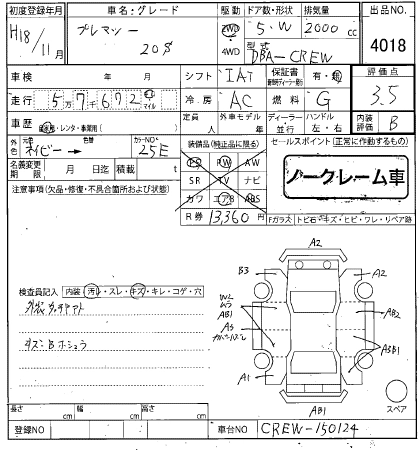 初度登録年月 車名:グレード 駆動 ドア数/形状 排気量 出品NO.
H18/11月 プレマシー 20S 2WD 4WD 5.W 2000cc 4018
型式 DBA-CREW
車検 年 月 シフト IAT 保証書 有・無 評価点
走行 5万7千672 マイル 冷房 AC 燃料 G 3.5
車歴 自家用・レンタ・事業用( ) 定員 人 外車モデル 年 ディーラー 並行 ハンドル 左・右 内装評価 B
外色 元色 ネイビー→ 色替 カラーNO. 25E
装備品(純正品に限る) セールスポイント(正常に作動するもの)
名義変更期限 月 日迄 積載 t
PS PW AW
SR TV ナビ
カワ エアB ABS
ノークレーム車
R券 13,360円
Fガラス:トビ石・キズ・ヒビ・ワレ・リペア跡
注意事項(欠品・修復・不具合箇所および状態)
検査員記入 内装 汚レ・スレ・キズ・キレ・コゲ・穴
A2
B3 A2
AB1 AB2
A5
A3B1
A1
AB1
スペア
長さ cm 幅 cm 高さ cm
登録NO 車台NO CREW-150124